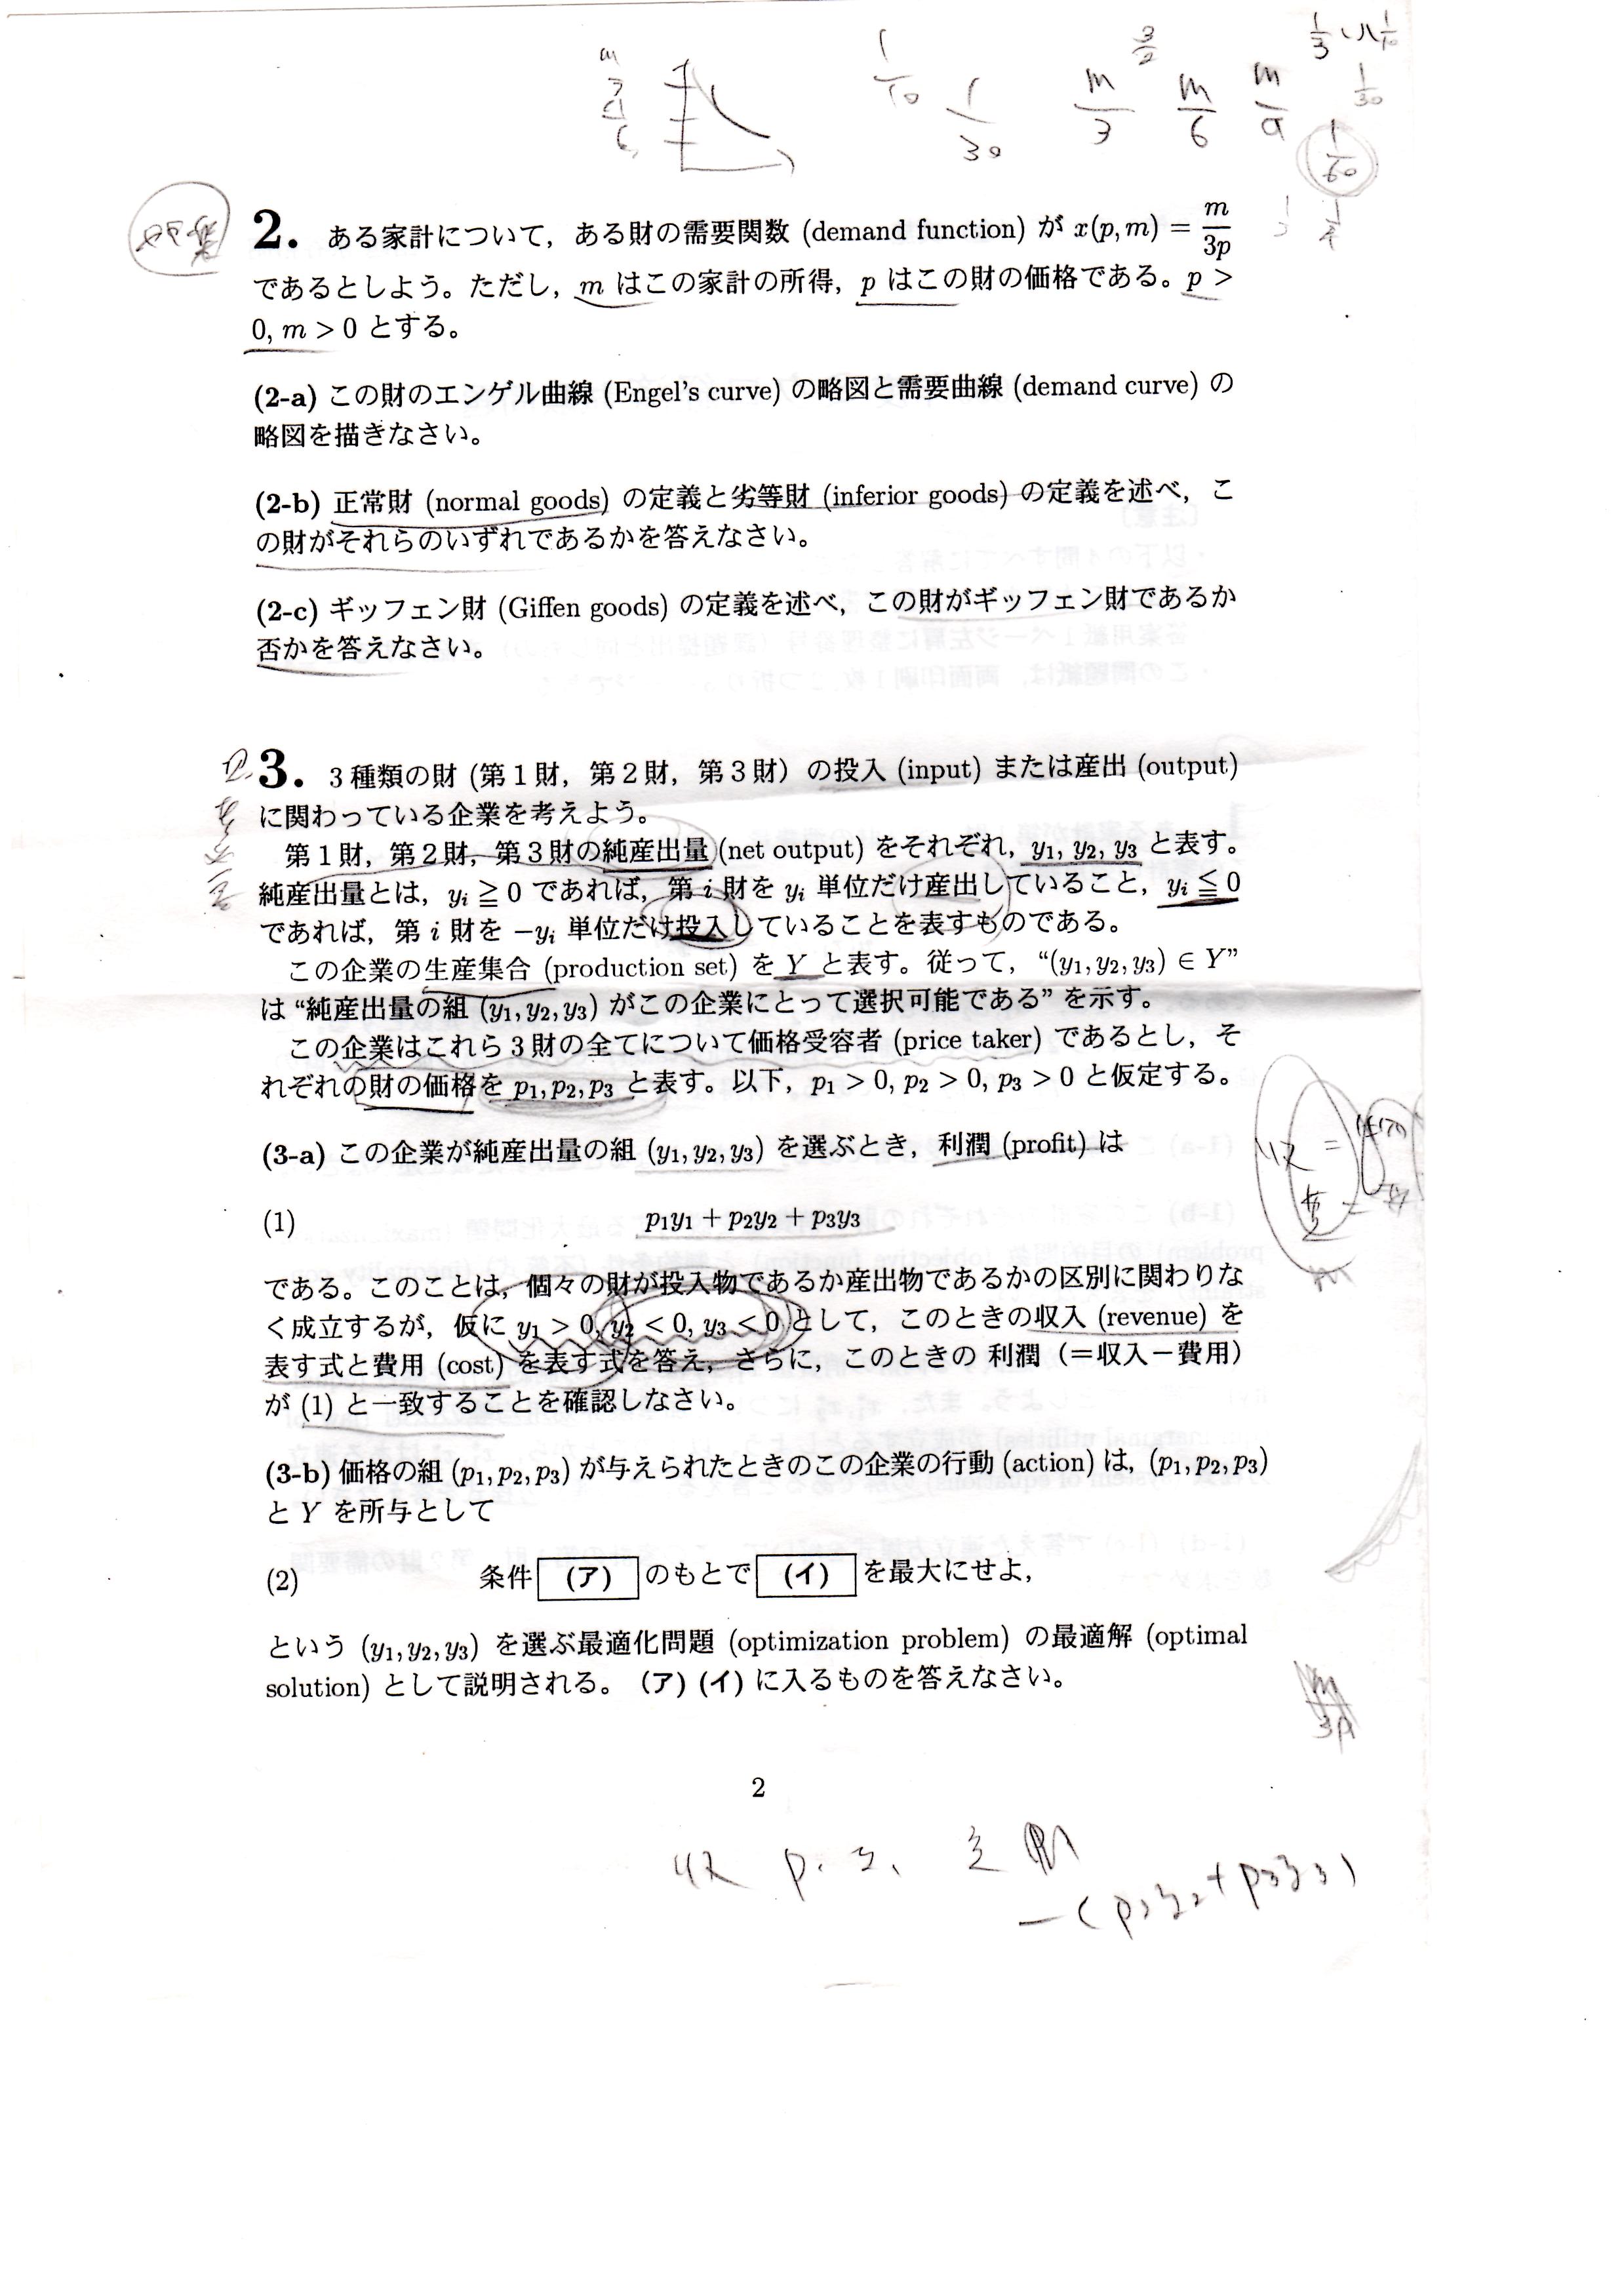 2. ある家計について，ある財の需要関数 (demand function) が x(p, m) = m/3p
であるとしよう。ただし，m はこの家計の所得，p はこの財の価格である。p >
0, m > 0 とする。
(2-a) この財のエンゲル曲線 (Engel's curve) の略図と需要曲線 (demand curve) の
略図を描きなさい。
(2-b) 正常財 (normal goods) の定義と劣等財 (inferior goods) の定義を述べ，こ
の財がそれらのいずれであるかを答えなさい。
(2-c) ギッフェン財 (Giffen goods) の定義を述べ，この財がギッフェン財であるか
否かを答えなさい。
3. 3種類の財 (第1財，第2財，第3財）の投入 (input) または産出 (output)
に関わっている企業を考えよう。
第1財，第2財，第3財の純産出量 (net output) をそれぞれ，y₁, y₂, y₃ と表す。
純産出量とは，yᵢ ≧ 0 であれば，第 i 財を yᵢ 単位だけ産出していること，yᵢ ≦ 0
であれば，第 i 財を −yᵢ 単位だけ投入していることを表すものである。
この企業の生産集合 (production set) を Y と表す。従って，“(y₁, y₂, y₃) ∈ Y”
は “純産出量の組 (y₁, y₂, y₃) がこの企業にとって選択可能である” を示す。
この企業はこれら3財の全てについて価格受容者 (price taker) であるとし，そ
れぞれの財の価格を p₁, p₂, p₃ と表す。以下，p₁ > 0, p₂ > 0, p₃ > 0 と仮定する。
(3-a) この企業が純産出量の組 (y₁, y₂, y₃) を選ぶとき，利潤 (profit) は
(1) p₁y₁ + p₂y₂ + p₃y₃
である。このことは，個々の財が投入物であるか産出物であるかの区別に関わりな
く成立するが，仮に y₁ > 0, y₂ < 0, y₃ < 0 として，このときの収入 (revenue) を
表す式と費用 (cost) を表す式を答え，さらに，このときの 利潤（＝収入−費用）
が (1) と一致することを確認しなさい。
(3-b) 価格の組 (p₁, p₂, p₃) が与えられたときのこの企業の行動 (action) は，(p₁, p₂, p₃)
と Y を所与として
(2) 条件 (ア) のもとで (イ) を最大にせよ，
という (y₁, y₂, y₃) を選ぶ最適化問題 (optimization problem) の最適解 (optimal
solution) として説明される。（ア）(イ) に入るものを答えなさい。
2
−(p₂y₂+p₃y₃)